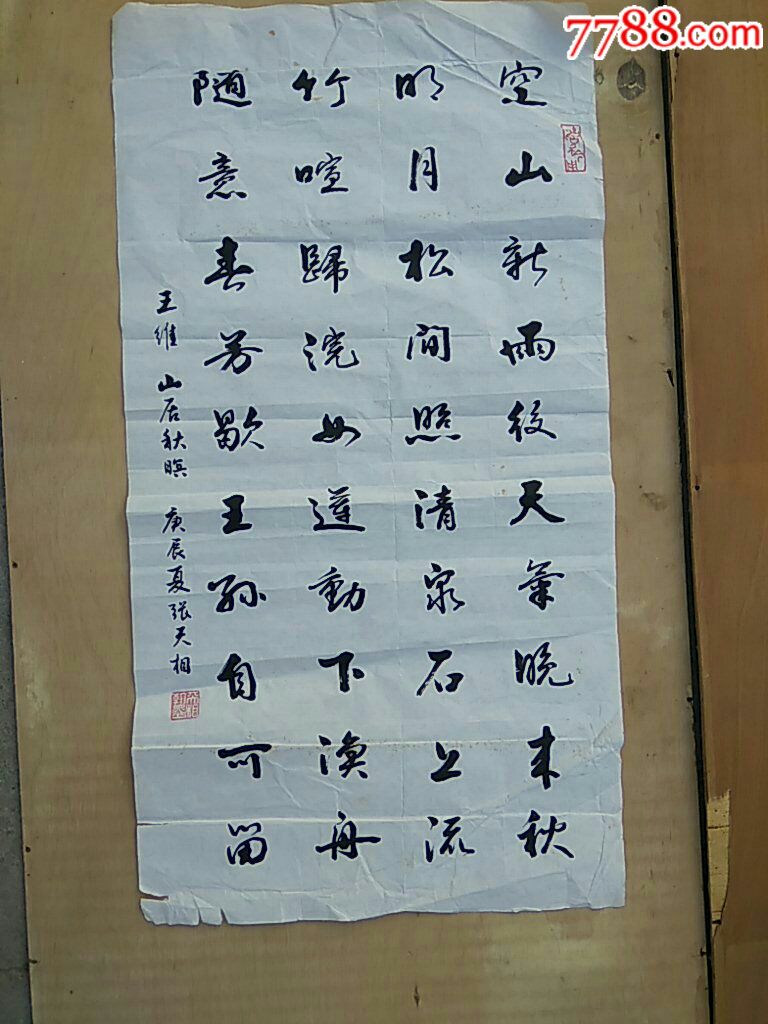 7788.com
空山新雨後天氣晚来秋
明月松間照清泉石上流
竹喧歸浣女莲動下漁舟
随意春芳歇王孙自可留
王维 山居秋暝 庚辰夏張天相